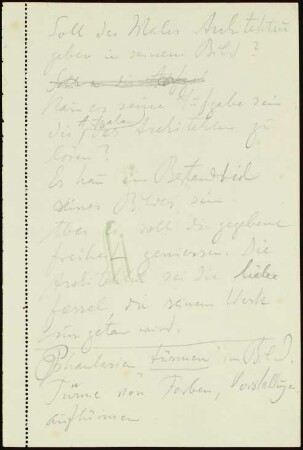 Soll der Maler Architektur
geben in seinem Bild?
Kann es seine Aufgabe sein
die Aufgabe des Architekten zu
lösen?
Es kann ein Bestandteil
seines Bildes sein
Aber er soll die gegebene
Freiheit geniessen. Die
Architektur sei die liebe
Fessel, die seinem Werk
angetan wird.
Phantasien türmen im Bild.
Türme von Farben, Vorstellungen
auftürmen